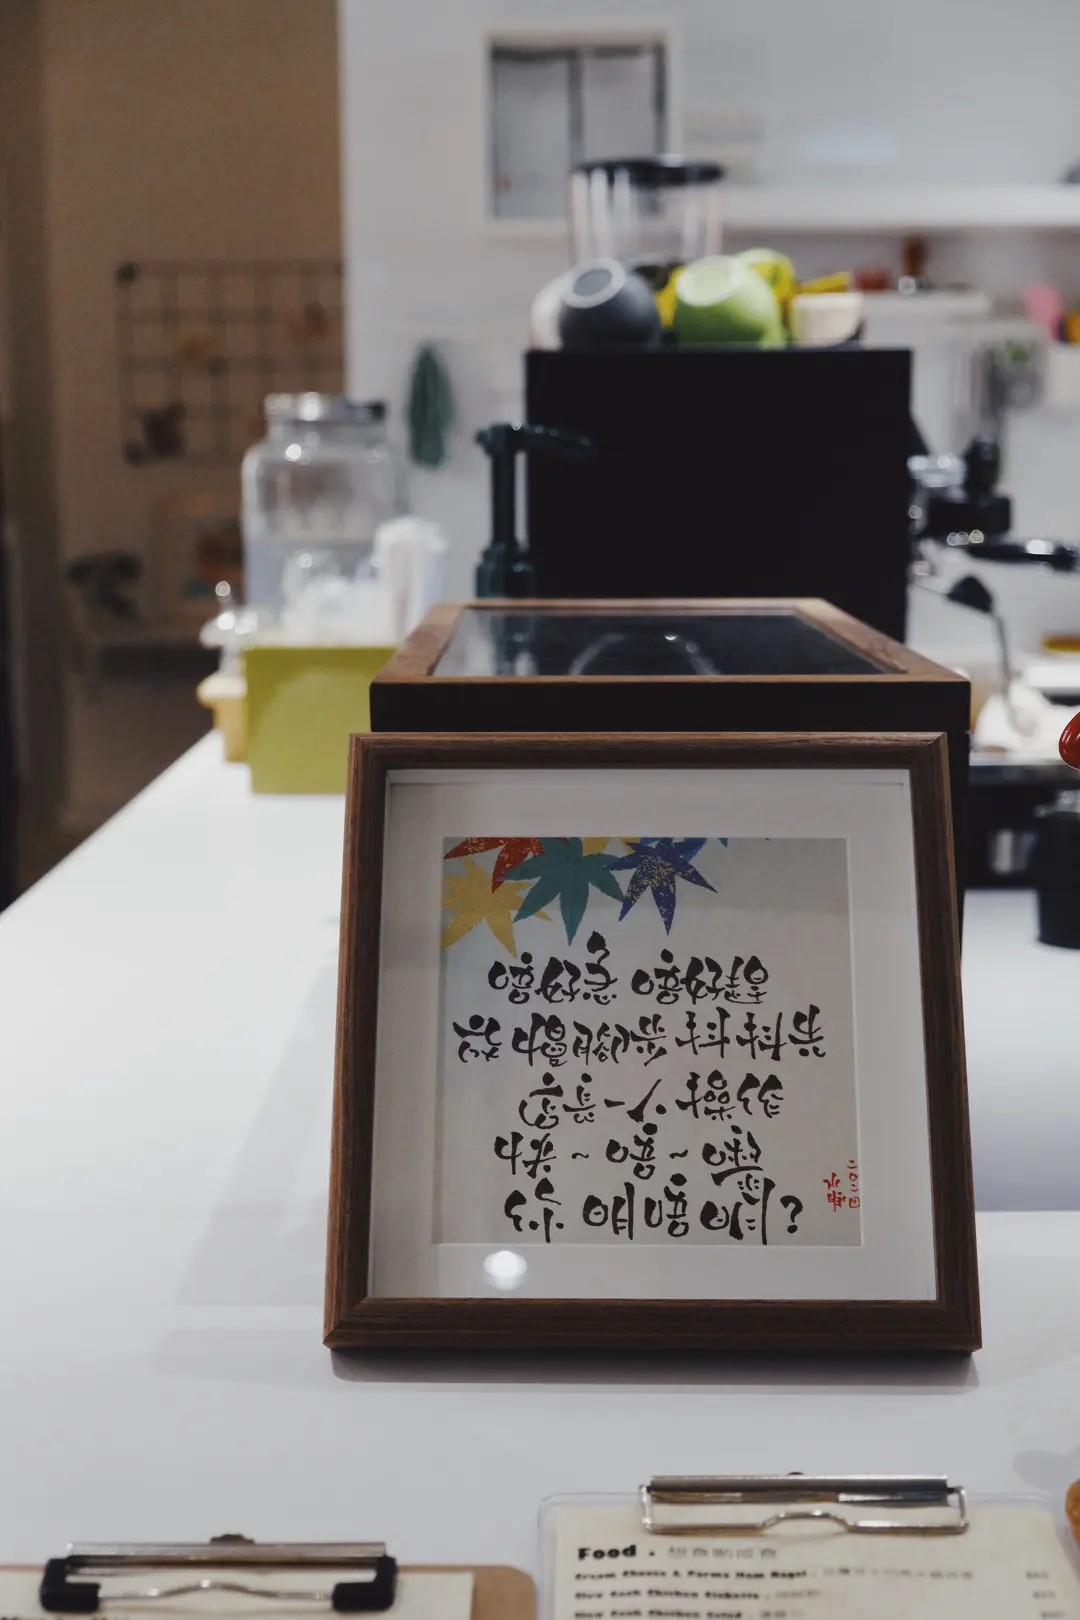 唔好急 唔好趕
放慢腳步 抖抖先
店長一人操作
快~唔~嚟
你明唔明?
二〇二四
Food .
Cream Cheese & Parma Ham Bagel .
Slow Cook Chicken
Slow Cook Chicken Salad .